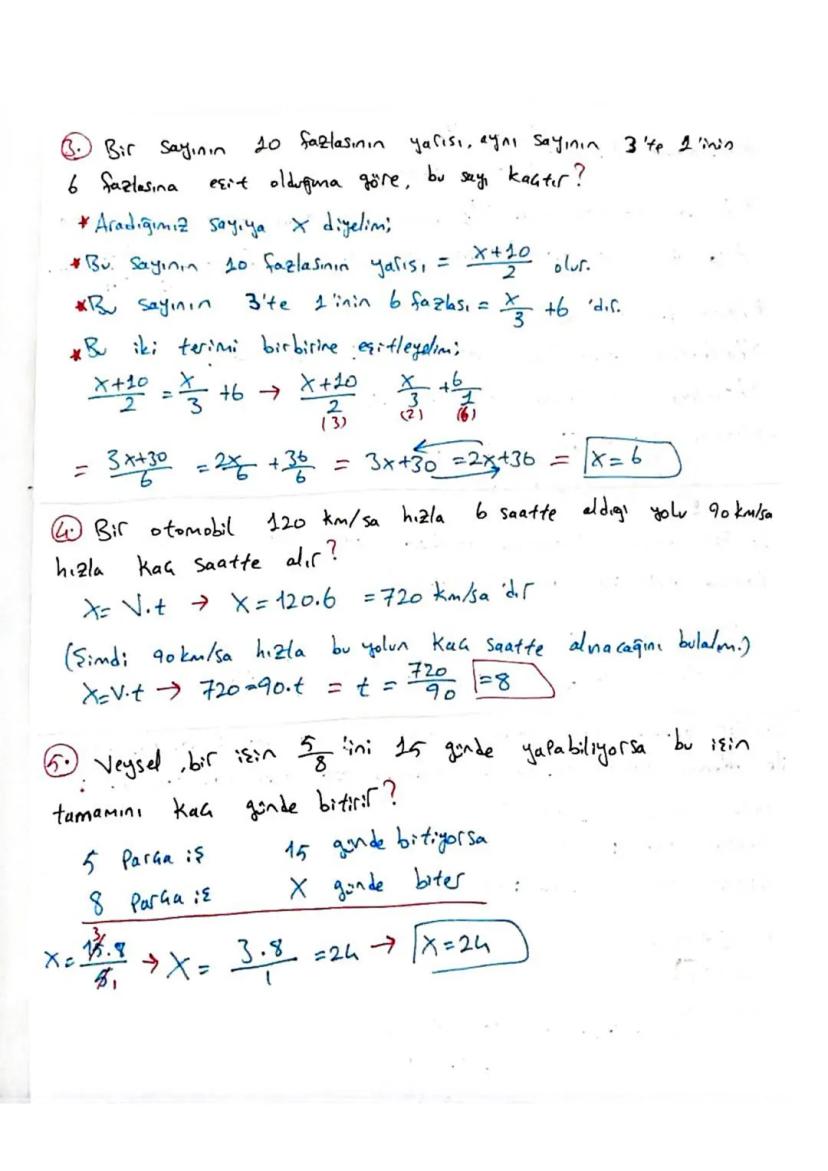 3. Bir sayının 10 fazlasının yarısı, aynı sayının 3'te 1'inin
6 fazlasına eşit olduğuna göre, bu sayı kaçtır?
* Aradığımız sayıya x diyelim;
* Bu sayının 10 fazlasının yarısı = x+10/2 olur.
* Bu sayının 3'te 1'inin 6 fazlası = x/3 +6 'dır.
* Bu iki terimi birbirine eşitleyelim;
x+10/2 = x/3 +6 → x+10/2 x/3 + 6/1
(3) (2) (6)
= 3x+30/6 = 2x/6 + 36/6 = 3x+30 = 2x+36 = x=6
4. Bir otomobil 120 km/sa hızla 6 saatte aldığı yolu 90 km/sa
hızla kaç saatte alır?
X= V.t → X= 120.6 =720 km/sa 'dır
(Şimdi 90 km/sa hızla bu yolun kaç saatte alınacağını bulalım.)
X=V.t → 720=90.t = t = 720/90 =8
5. Veysel, bir işin 5/8 'ini 15 günde yapabiliyorsa bu işin
tamamını kaç günde bitirir?
5 Parça iş 15 günde bitiyorsa
8 Parça iş X günde biter
X= 15.8/5 → X= 3.8/1 =24 → X=24
3 1